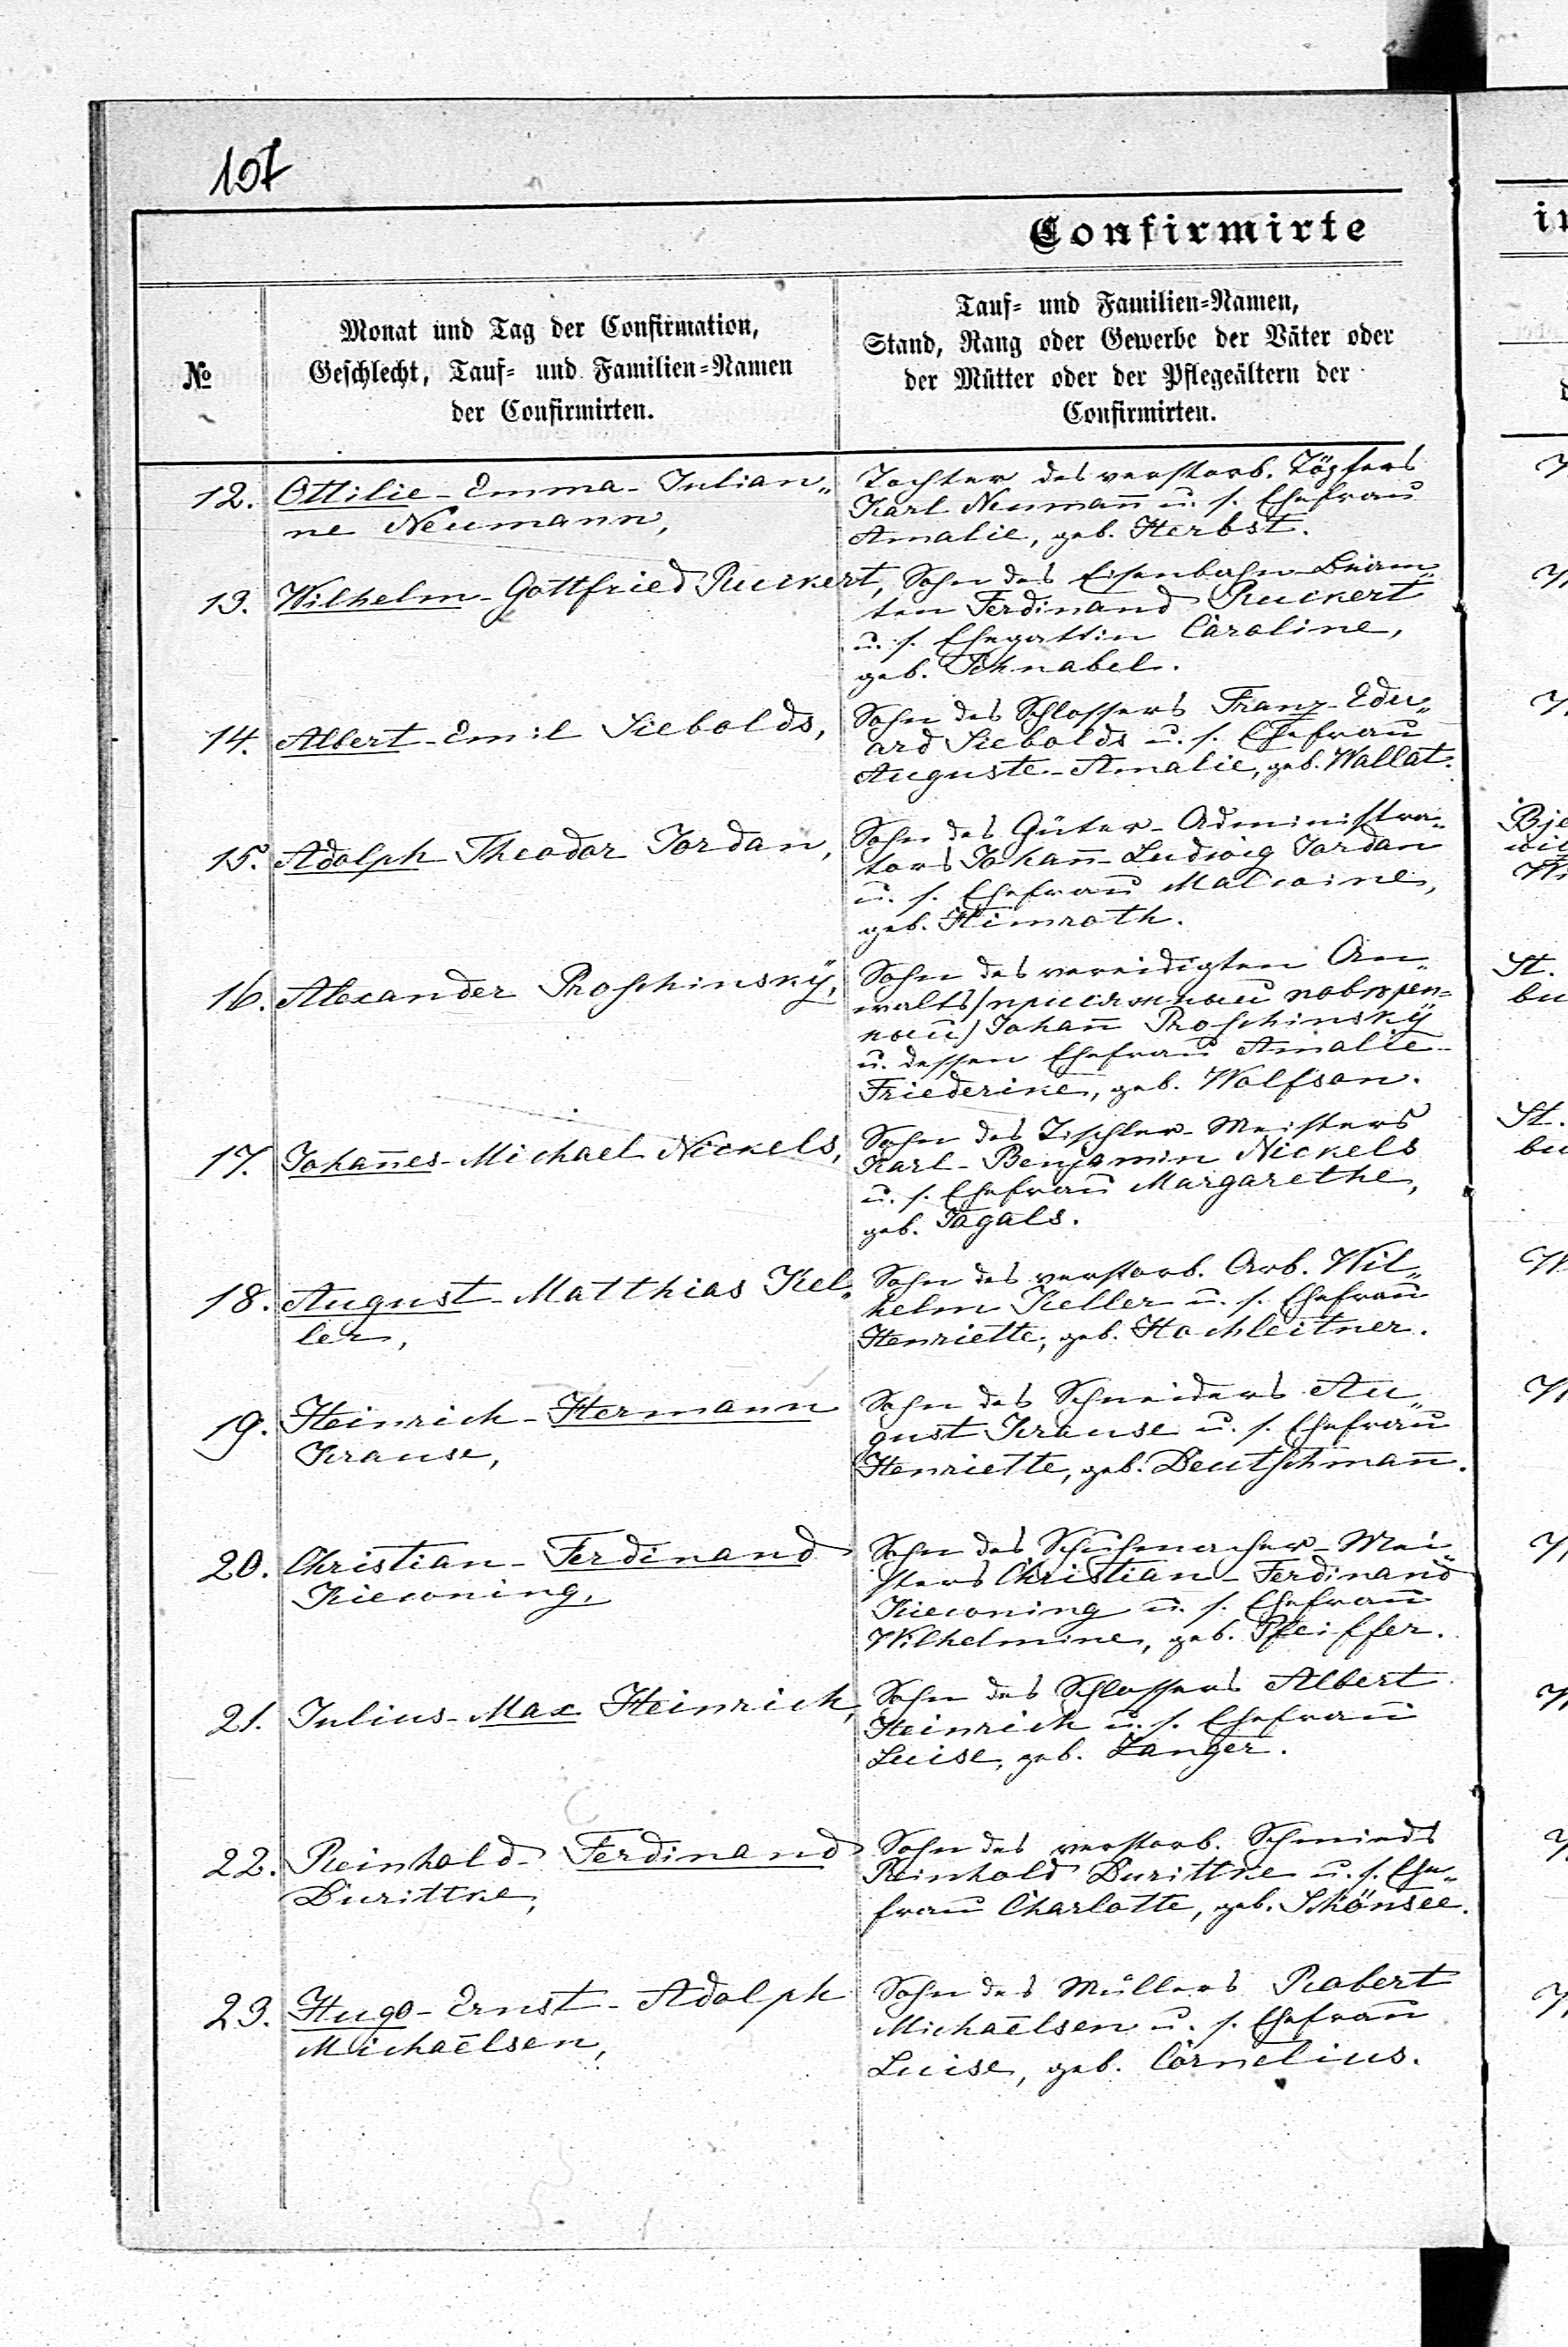 107
Confirmirte
№
Monat und Tag der Confirmation,
Geschlecht, Tauf- und Familien-Namen
der Confirmirten.
Tauf- und Familien-Namen,
Stand, Rang oder Gewerbe der Väter oder
der Mütter oder der Pflegeältern der
Confirmirten.
12. Ottilie-Emma-Julian„
ne Neumann,
Tochter des verstorb. Töpfers
Karl Neumañ u. s. Ehefrau
Amalie, geb. Herbst.
13. Wilhelm-Gottfried Ruckert,
Sohn des Eisenbahn-Beam„
ten Ferdinand Ruckert
u. s. Ehegattin Caroline,
geb. Schnabel.
14. Albert-Emil Siebolds,
Sohn des Schlossers Franz-Edu„
ard Siebolds u. s. Ehefrau
Auguste-Amalie, geb. Wallat.
15. Adolph Theodor Jordan,
Sohn des Güter-Administra„
tors Johañ-Ludwig Jordan
u. s. Ehefrau Malwine,
geb. Himroth.
16. Alexander Proschinský,
Sohn des vereidigten An„
walts/присяжный повѣрен=
ный/ Johañ Proschinský
u. dessen Ehefrau Amalie-
Friederike, geb. Wolfson.
17. Johañes-Michael Nickels,
Sohn des Tischler-Meisters
Karl-Benjamin Nickels
u. s. Ehefrau Margarethe,
geb. Jagals.
18. August-Matthias Kel„
ler,
Sohn des verstorb. Arb. Wil„
helm Keller u. s. Ehefrau
Henriette, geb. Hochleitner.
19. Heinrich-Hermann
Krause,
Sohn des Schneiders Au„
gust Krause u. s. Ehefrau
Henriette, geb. Deutschmañ.
20. Christian-Ferdinand
Kiewning,
Sohn des Schuhmacher-Mei„
sters Christian-Ferdinand
Kiewning u. s. Ehefrau
Wilhelmine, geb. Pfeiffer.
21. Julius-Max Heinrich,
Sohn des Schlossers Albert
Heinrich u. s. Ehefrau
Luise, geb. Langer.
22. Reinhold-Ferdinand
Durittke,
Sohn des verstorb. Schmieds
Reinhold Durittke u. s. Ehe„
frau Charlotte, geb. Schönsee.
23. Hugo-Ernst-Adolph
Michaëlsen,
Sohn des Müllers Robert
Michaëlsen u. s. Ehefrau
Luise, geb. Cornelius.